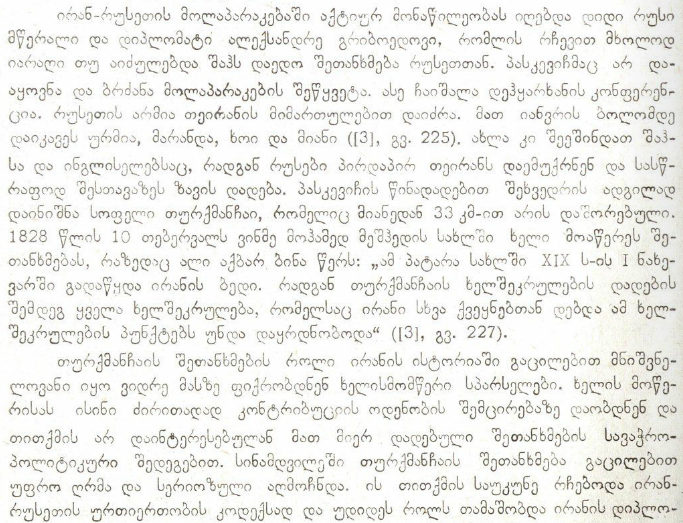 ირან-რუსეთის მოლაპარაკებაში აქტიურ მონაწილეობას იღებდა დიდი რუსი
მწერალი და დიპლომატი ალექსანდრე გრიბოედოვი, რომლის რჩევით მხოლოდ
იარაღი თუ აიძულებდა შაჰს დაედო შეთანხმება რუსეთთან. პასკევიჩმაც არ და-
აყოვნა და ბრძანა მოლაპარაკების შეწყვეტა. ასე ჩაიშალა დეჰყარხანის კონფერენ-
ცია. რუსეთის არმია თეირანის მიმართულებით დაიძრა. მათ იანვრის ბოლომდე
დაიკავეს ურმია, მარანდა, ხოი და მიანი ([3], გვ. 225). ახლა კი შეეშინდათ შაჰ-
სა და ინგლისელებსაც, რადგან რუსები პირდაპირ თეირანს დაემუქრნენ და სასწ-
რაფოდ შესთავაზეს ზავის დადება. პასკევიჩის წინადადებით შეხვედრის ადგილად
დაინიშნა სოფელი თურქმანჩაი, რომელიც მიანედან 33 კმ-ით არის დაშორებული.
1828 წლის 10 თებერვალს ვინმე მოჰამედ მეშჰედის სახლში ხელი მოაწერეს შე-
თანხმებას, რაზედაც ალი აქბარ ბინა წერს: „ამ პატარა სახლში XIX ს-ის I ნახე-
ვარში გადაწყდა ირანის ბედი. რადგან თურქმანჩაის ხელშეკრულების დადების
შემდეგ ყველა ხელშეკრულება, რომელსაც ირანი სხვა ქვეყნებთან დებდა ამ ხელ-
შეკრულების პუნქტებს უნდა დაყრდნობოდა“ ([3], გვ. 227).
თურქმანჩაის შეთანხმების როლი ირანის ისტორიაში გაცილებით მნიშვნე-
ლოვანი იყო ვიდრე მასზე ფიქრობდნენ ხელისმომწერი სპარსელები. ხელის მოწე-
რისას ისინი ძირითადად კონტრიბუციის ოდენობის შემცირებაზე დაობდნენ და
თითქმის არ დაინტერესებულან მათ მიერ დადებული შეთანხმების სავაჭრო-
პოლიტიკური შედეგებით. სინამდვილეში თურქმანჩაის შეთანხმება გაცილებით
უფრო ღრმა და სერიოზული აღმოჩნდა. ის თითქმის საუკუნე რჩებოდა ირან-
რუსეთის ურთიერთობის კოდექსად და უდიდეს როლს თამაშობდა ირანის დიპლო-